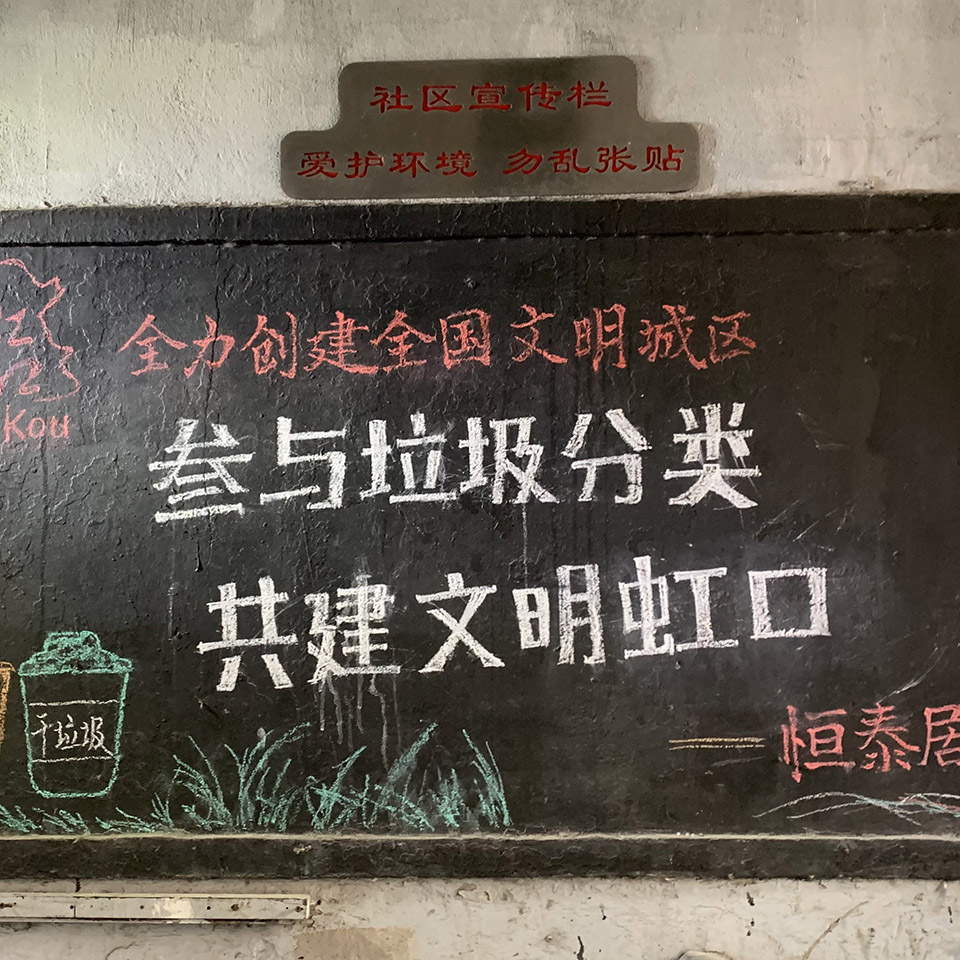 社区宣传栏
爱护环境 勿乱张贴
全力创建全国文明城区
Kou
参与垃圾分类
共建文明虹口
干垃圾
恒泰居